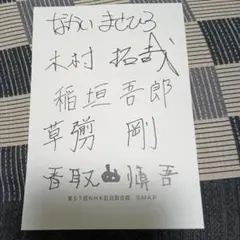 なかい まさひろ
木村 拓哉
稲垣 吾郎
草彅 剛
香取 慎吾
第57回NHK紅白歌合戦 SMAP